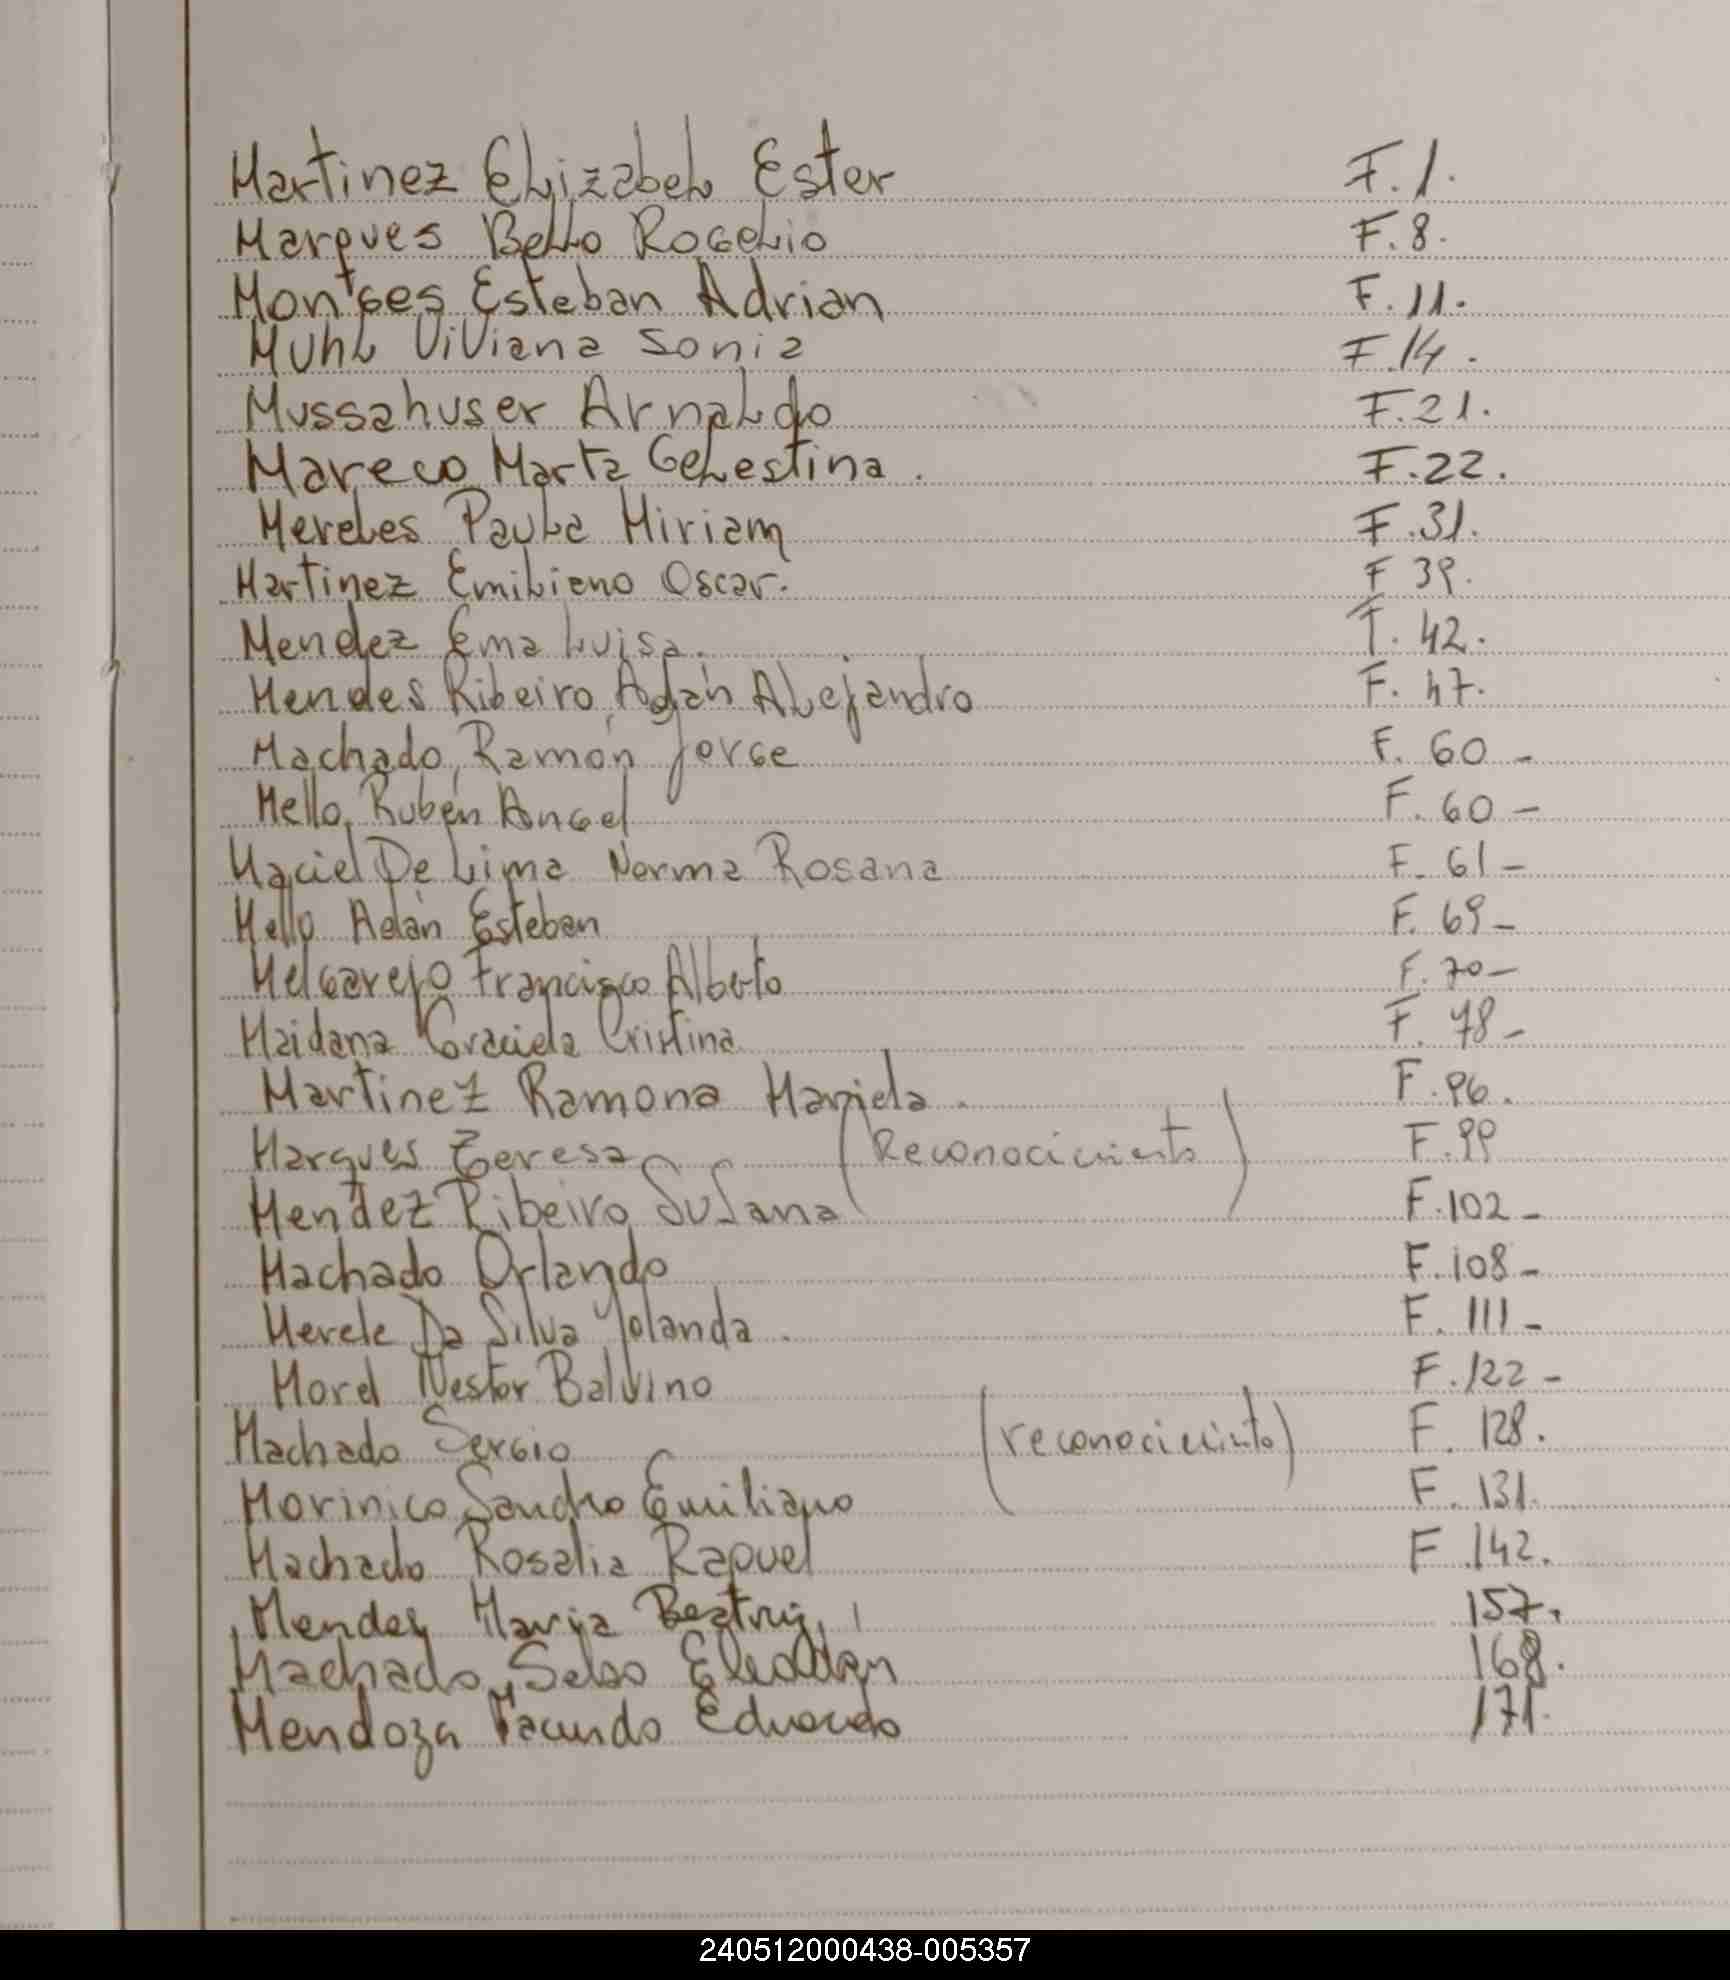 Martinez Elizabel Ester F. 1.
Marques Bello Rogelio F. 8.
Montges Esteban Adrian F. 11.
Muhl Viviana Sonia F. 14.
Mussahuser Arnaldo F. 21.
Mareco Marta Celestina. F. 22.
Mereles Paula Miriam F. 31.
Martinez Emiliano Oscar. F 39.
Mendez Ema Luisa. F. 42.
Mendes Ribeiro, Adán Alejandro F. 47.
Machado, Ramón Jorge F. 60 -
Mello, Rubén Angel F. 60 -
Maciel De Lima Norma Rosana F. 61 -
Mello Adán Esteban F. 69 -
Melgarejo Francisco Alberto F. 70 -
Maidana Graciela Cristina F. 78 -
Martinez Ramona Mariela. F. 96.
Marques Teresa (Reconocimiento) F. 99
Mendez Ribeiro Susana F. 102 -
Machado Orlando F. 108 -
Merele Da Silva Yolanda. F. 111 -
Morel Nestor Balvino F. 122 -
Machado Sergio (reconocimiento) F. 128.
Morinico Sandro Emiliano F. 131.
Machado Rosalia Raquel F 142.
Mendez Maria Beatriz 157.
Machado, Selso 168.
Mendoza Facundo Eduardo 171.
240512000438-005357